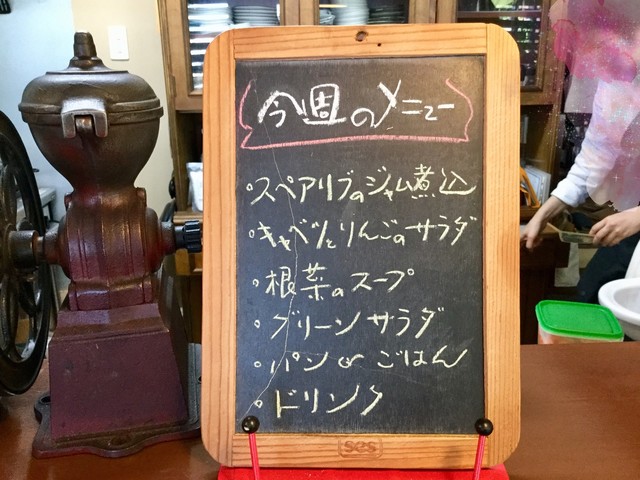 今週のメニュー
・スペアリブのジャム煮込
・キャベツとりんごのサラダ
・根菜のスープ
・グリーンサラダ
・パン or ごはん
・ドリンク
ses